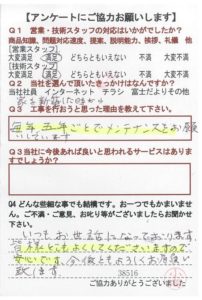 【アンケートにご協力お願いします】
Q1 営業・技術スタッフの対応はいかがでしたか?
商品知識、問題対応速度、提案、説明能力、挨拶、礼儀 他
【営業スタッフ】
大変満足 満足 どちらともいえない 不満 大変不満
【技術スタッフ】
大変満足 満足 どちらともいえない 不満 大変不満
Q2 当社を選んで頂いたきっかけはなんですか?
当社社員 インターネット チラシ 富士だよりその他
家を新築した時から
Q3 工事を行おうと思った理由を教えて下さい。
毎年五年ごとでメンテナンスをお願い
しています
Q3当社に今後あれば良いと思われるサービスはありま
すでしょうか?
Q4 どんな些細な事でも結構です。お一つでもかまいませ
ん。ご不満・ご意見、お叱り等がございましたらお聞かせ
下さい。
いつもお世話になっております。
皆様とてもよくしてくださいますので
安心です。今後ともよろしくお願い
致します。
38516
ご協力ありがとうございました